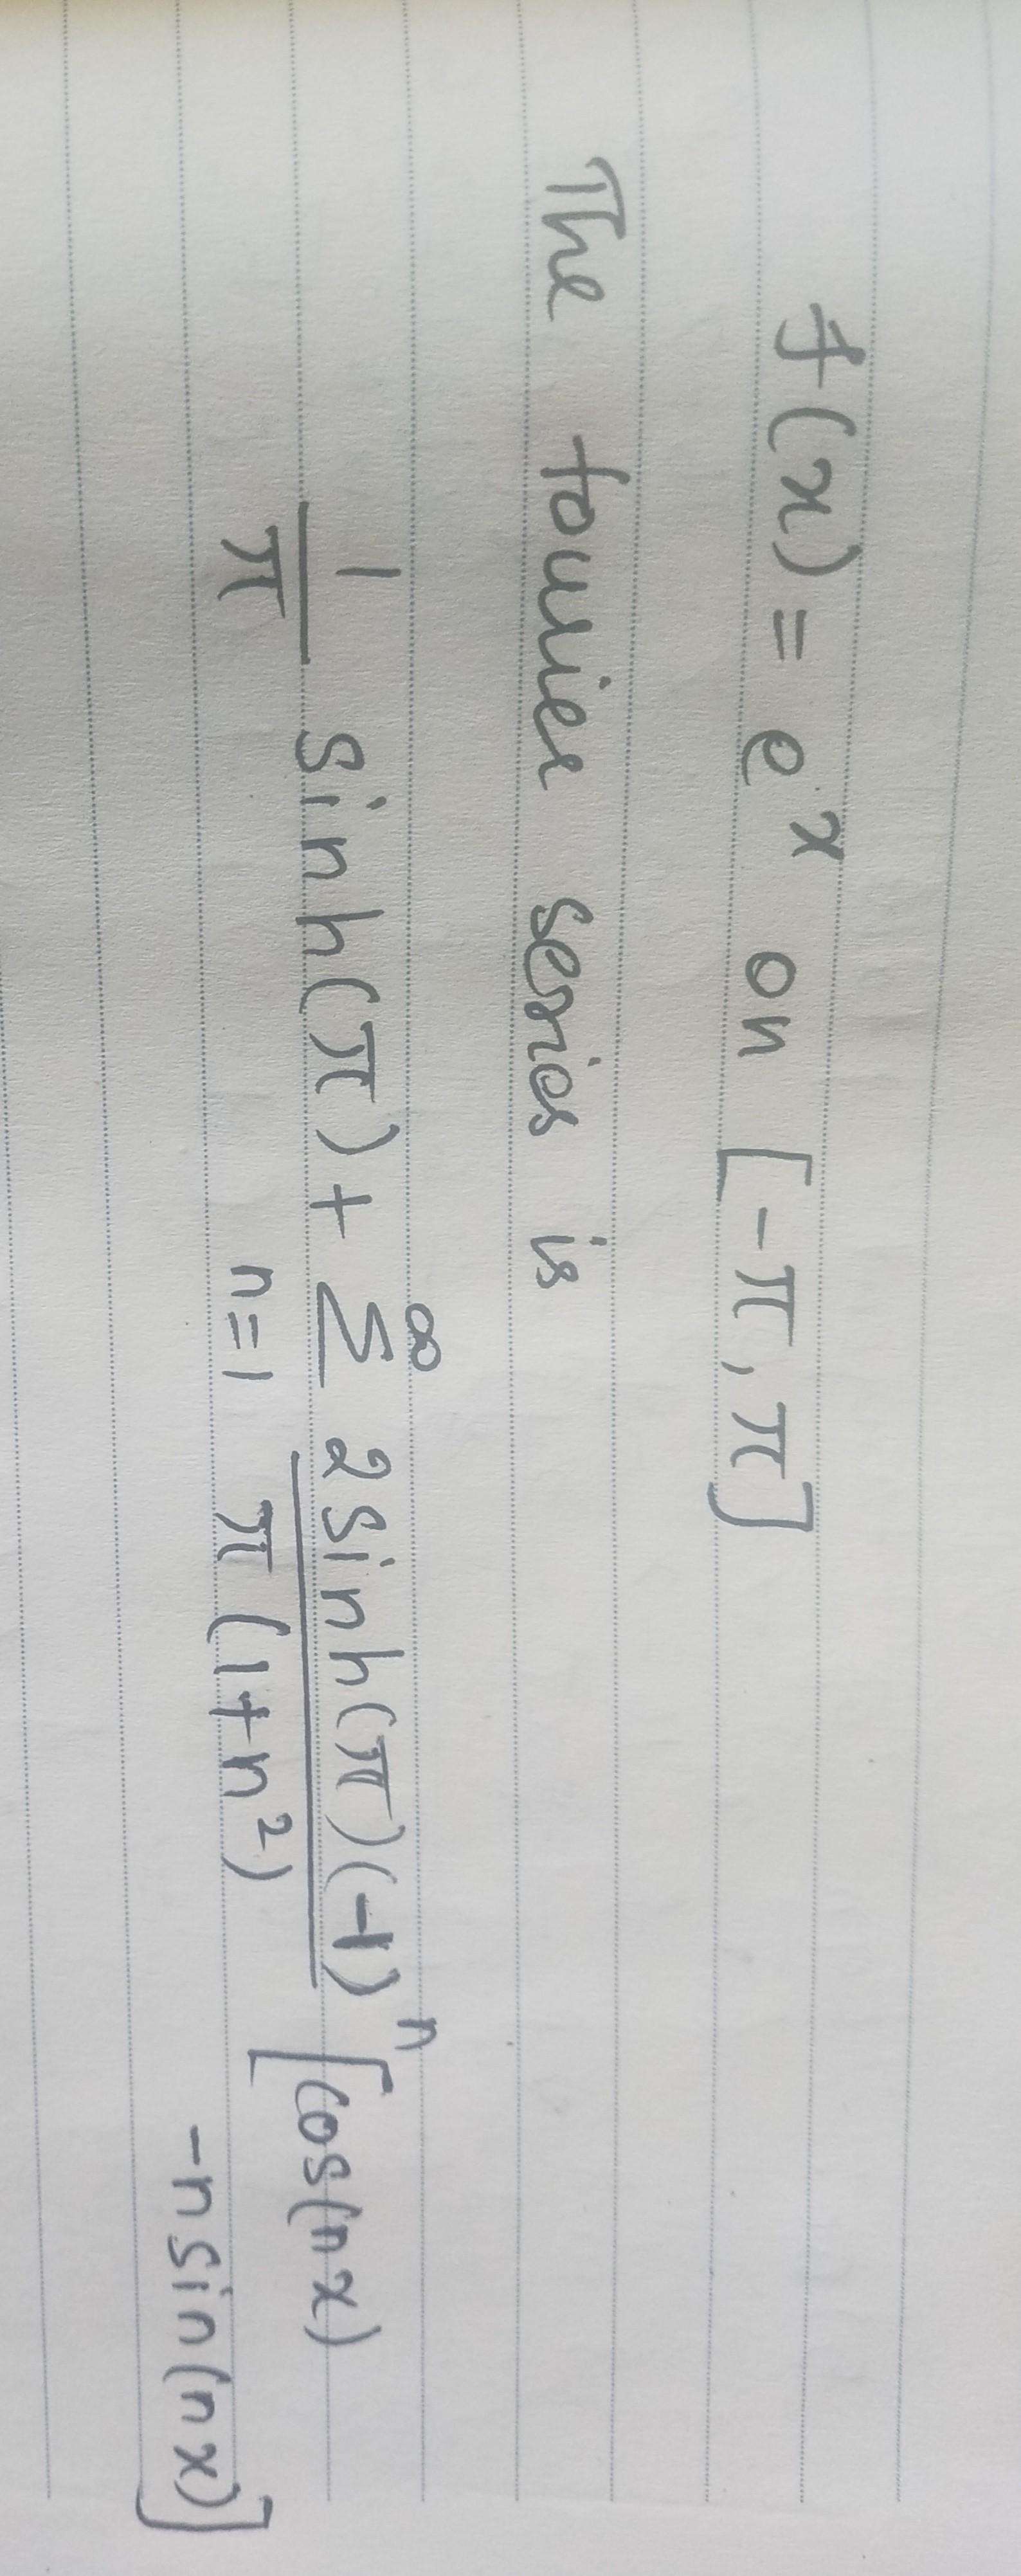 f(x) = e^x on [-π, π]
The fourier series is
1/π sinh(π) + ∑_{n=1}^{∞} 2 sinh(π)(-1)^n / π(1+n²) [cos(nx)
-n sin(nx)]